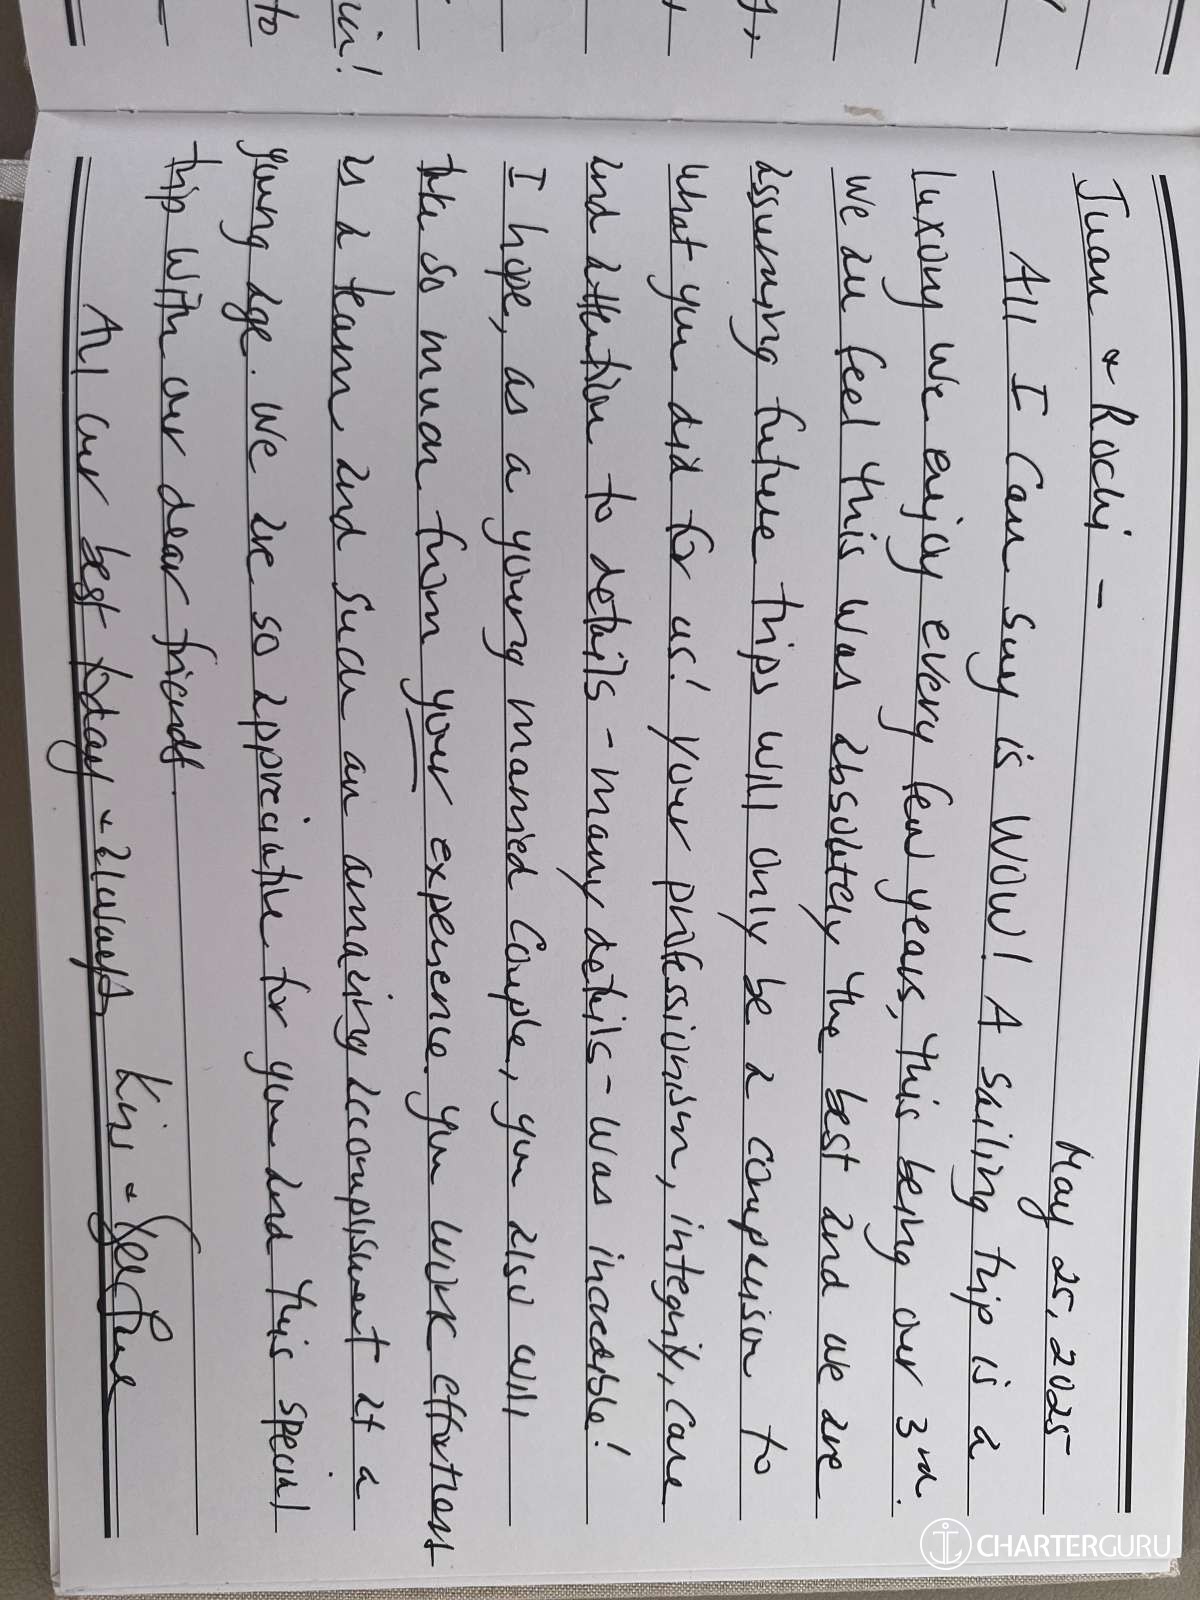 May 25, 2025
Juan & Rochi -
All I can say is WOW! A sailing trip is a
luxury we enjoy every few years, this being our 3rd.
We all feel this was absolutely the best and we are
assuming future trips will only be a comparison to
what you did for us! Your professionism, integrity, care
and attention to details - many details - was incredible!
I hope, as a young married couple, you also will
take so much from your experience. You work effortless
as a team and such an amazing accomplisment at a
young age. We are so appreciative for you and this special
trip with our dear friends.
All our best today & always
Kris &
CHARTERGURU
to